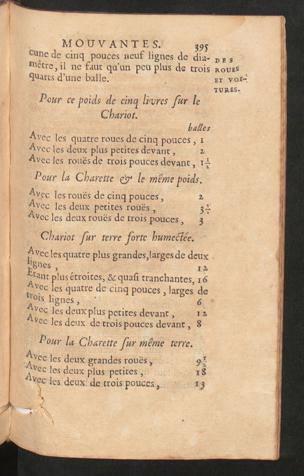 MOUVANTES. 395
cune de cinq pouces neuf lignes de dia-
mêtre, il ne faut qu'un peu plus de trois
quarts d'une balle.
DES
ROUES
ET VOI-
TURES.
Pour ce poids de cinq livres sur le
Chariot.
balles
Avec les quatre roues de cinq pouces, 1
Avec les deux plus petites devant, 2
Avec les rouës de trois pouces devant, 1½
Pour la Charette & le même poids.
Avec les rouës de cinq pouces, 2
Avec les deux petites rouës, 3½
Avec les deux rouës de trois pouces, 3
Chariot sur terre forte humectée.
Avec les quatre plus grandes, larges de deux
lignes, 12
Etant plus étroites, & quasi tranchantes, 16
Avec les quatre de cinq pouces, larges de
trois lignes, 6
Avec les deux plus petites devant, 12
Avec les deux de trois pouces devant, 8
Pour la Charette sur même terre.
Avec les deux grandes rouës, 9½
Avec les deux plus petites, 18
Avec les deux de trois pouces, 13